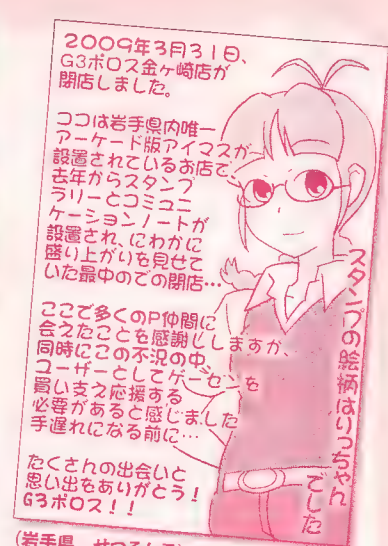 2009年3月31日、
G3ポロス金ヶ崎店が
閉店しました。
ココは岩手県内唯一
アーケード版アイマスが
設置されているお店で
去年からスタンプ
ラリーとコミュニ
ケーションノートが
設置され、にわかに
盛り上がりを見せて
いた最中のでの閉店…
ここで多くのP仲間に
会えたことを感謝しますが、
同時にこの不況の中、
ユーザーとしてゲーセンを
買い支え応援する
必要があると感じました
手遅れになる前に…
たくさんの出会いと
思い出をありがとう!
G3ポロス!!
スタンプの絵柄はりっちゃん
でした
(岩手県